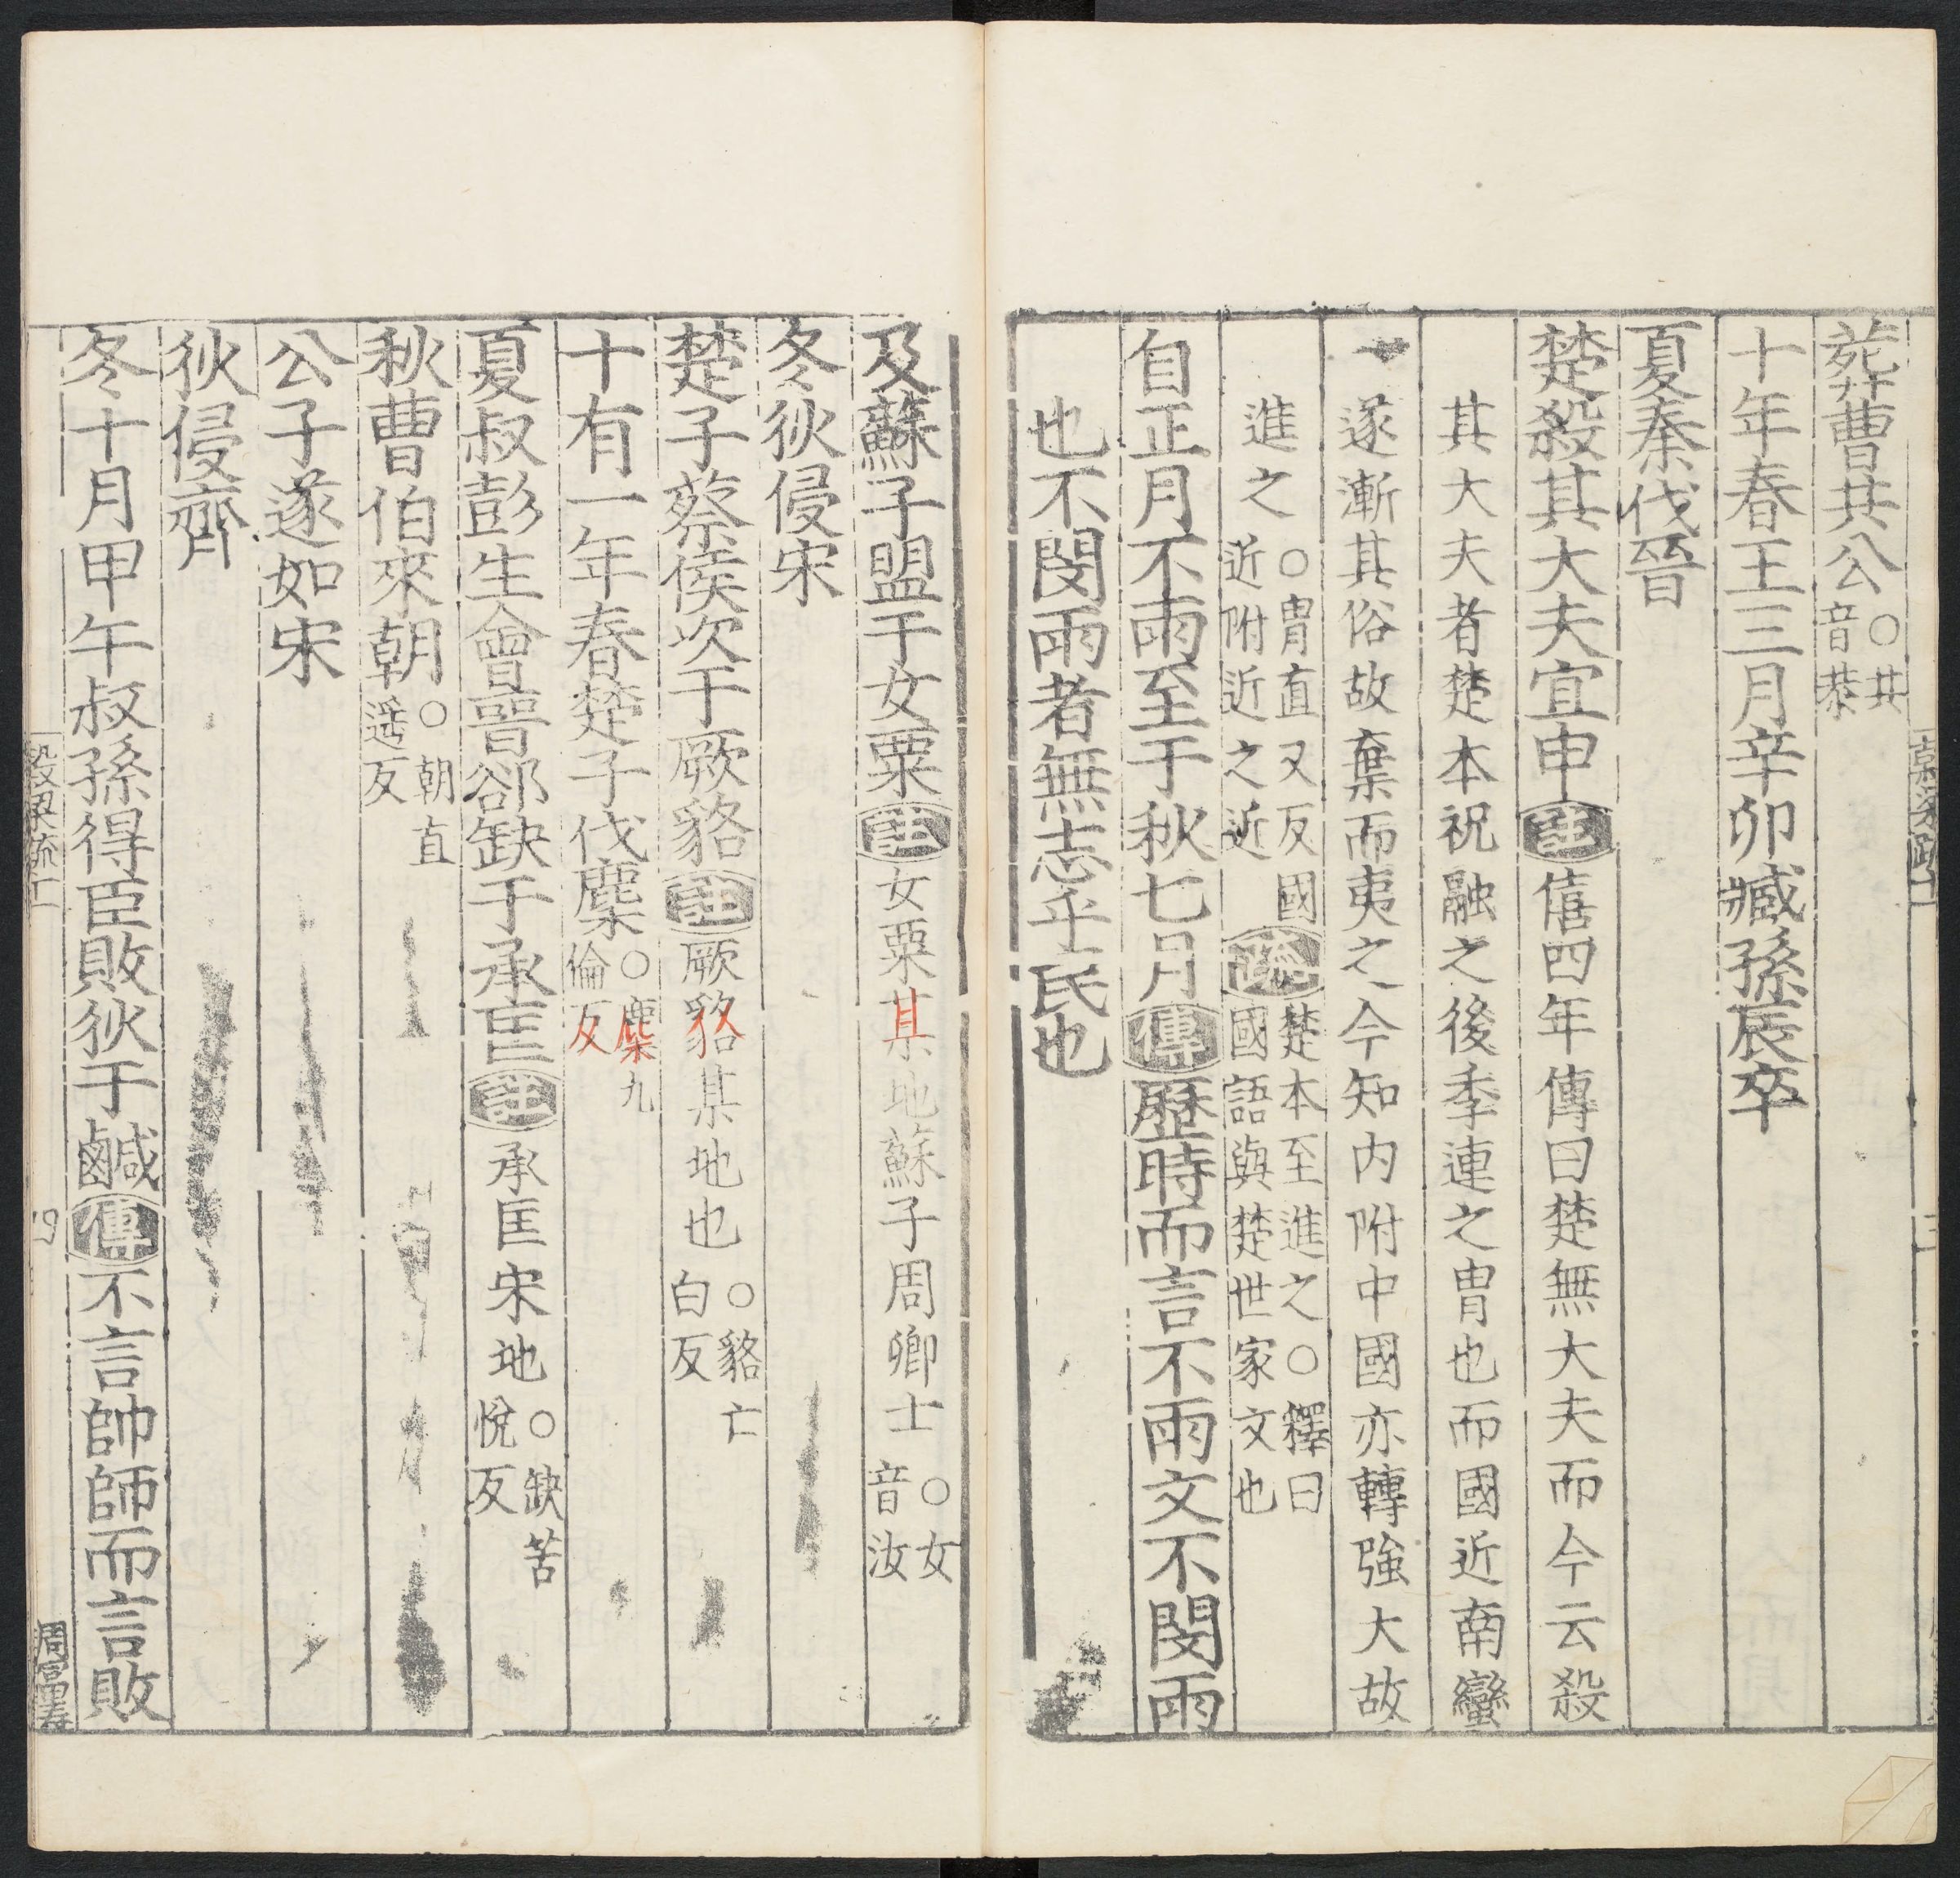 葬曹共公○共音恭
十年春王三月辛卯臧孫辰卒
夏秦伐晉
楚殺其大夫宜申註僖四年傳曰楚無大夫而今云殺
其大夫者楚本祝融之後季連之冑也而國近南蠻
遂漸其俗故棄而夷之今知內附中國亦轉強大故
進之○冑直又反國近附近之近疏楚本至進之○釋曰國語與楚世家文也
自正月不雨至于秋七月傳歷時而言不雨文不閔雨
也不閔雨者無志乎民也
及蘇子盟于女粟註女粟某地蘇子周卿士○女音汝
冬狄侵宋
楚子蔡侯次于厥貉註厥貉某地也○貉亡白反
十有一年春楚子伐麇○麇九倫反
夏叔彭生會晉郤缺于承匡註承匡宋地○缺苦悅反
秋曹伯來朝○朝直遥反
公子遂如宋
狄侵齊
冬十月甲午叔孫得臣敗狄于鹹傳不言帥師而言敗
四
周富壽